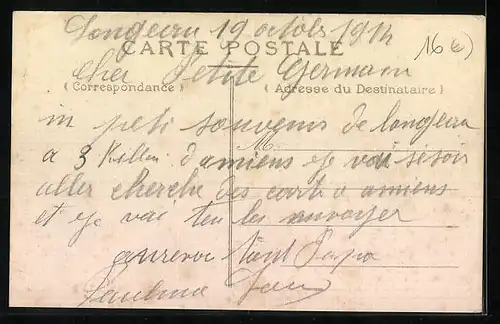 Longeau 19 octobr 1914
16 e)
CARTE POSTALE
cher Petite Germain
(Correspondance)
(Adresse du Destinataire)
in peti souvenir de longeau
M.
a 3 Killom d'amiens eje vai se soir
aller cherche des cart a amiens
et eje vai ten les anvoyer
aurevoi ton Papa